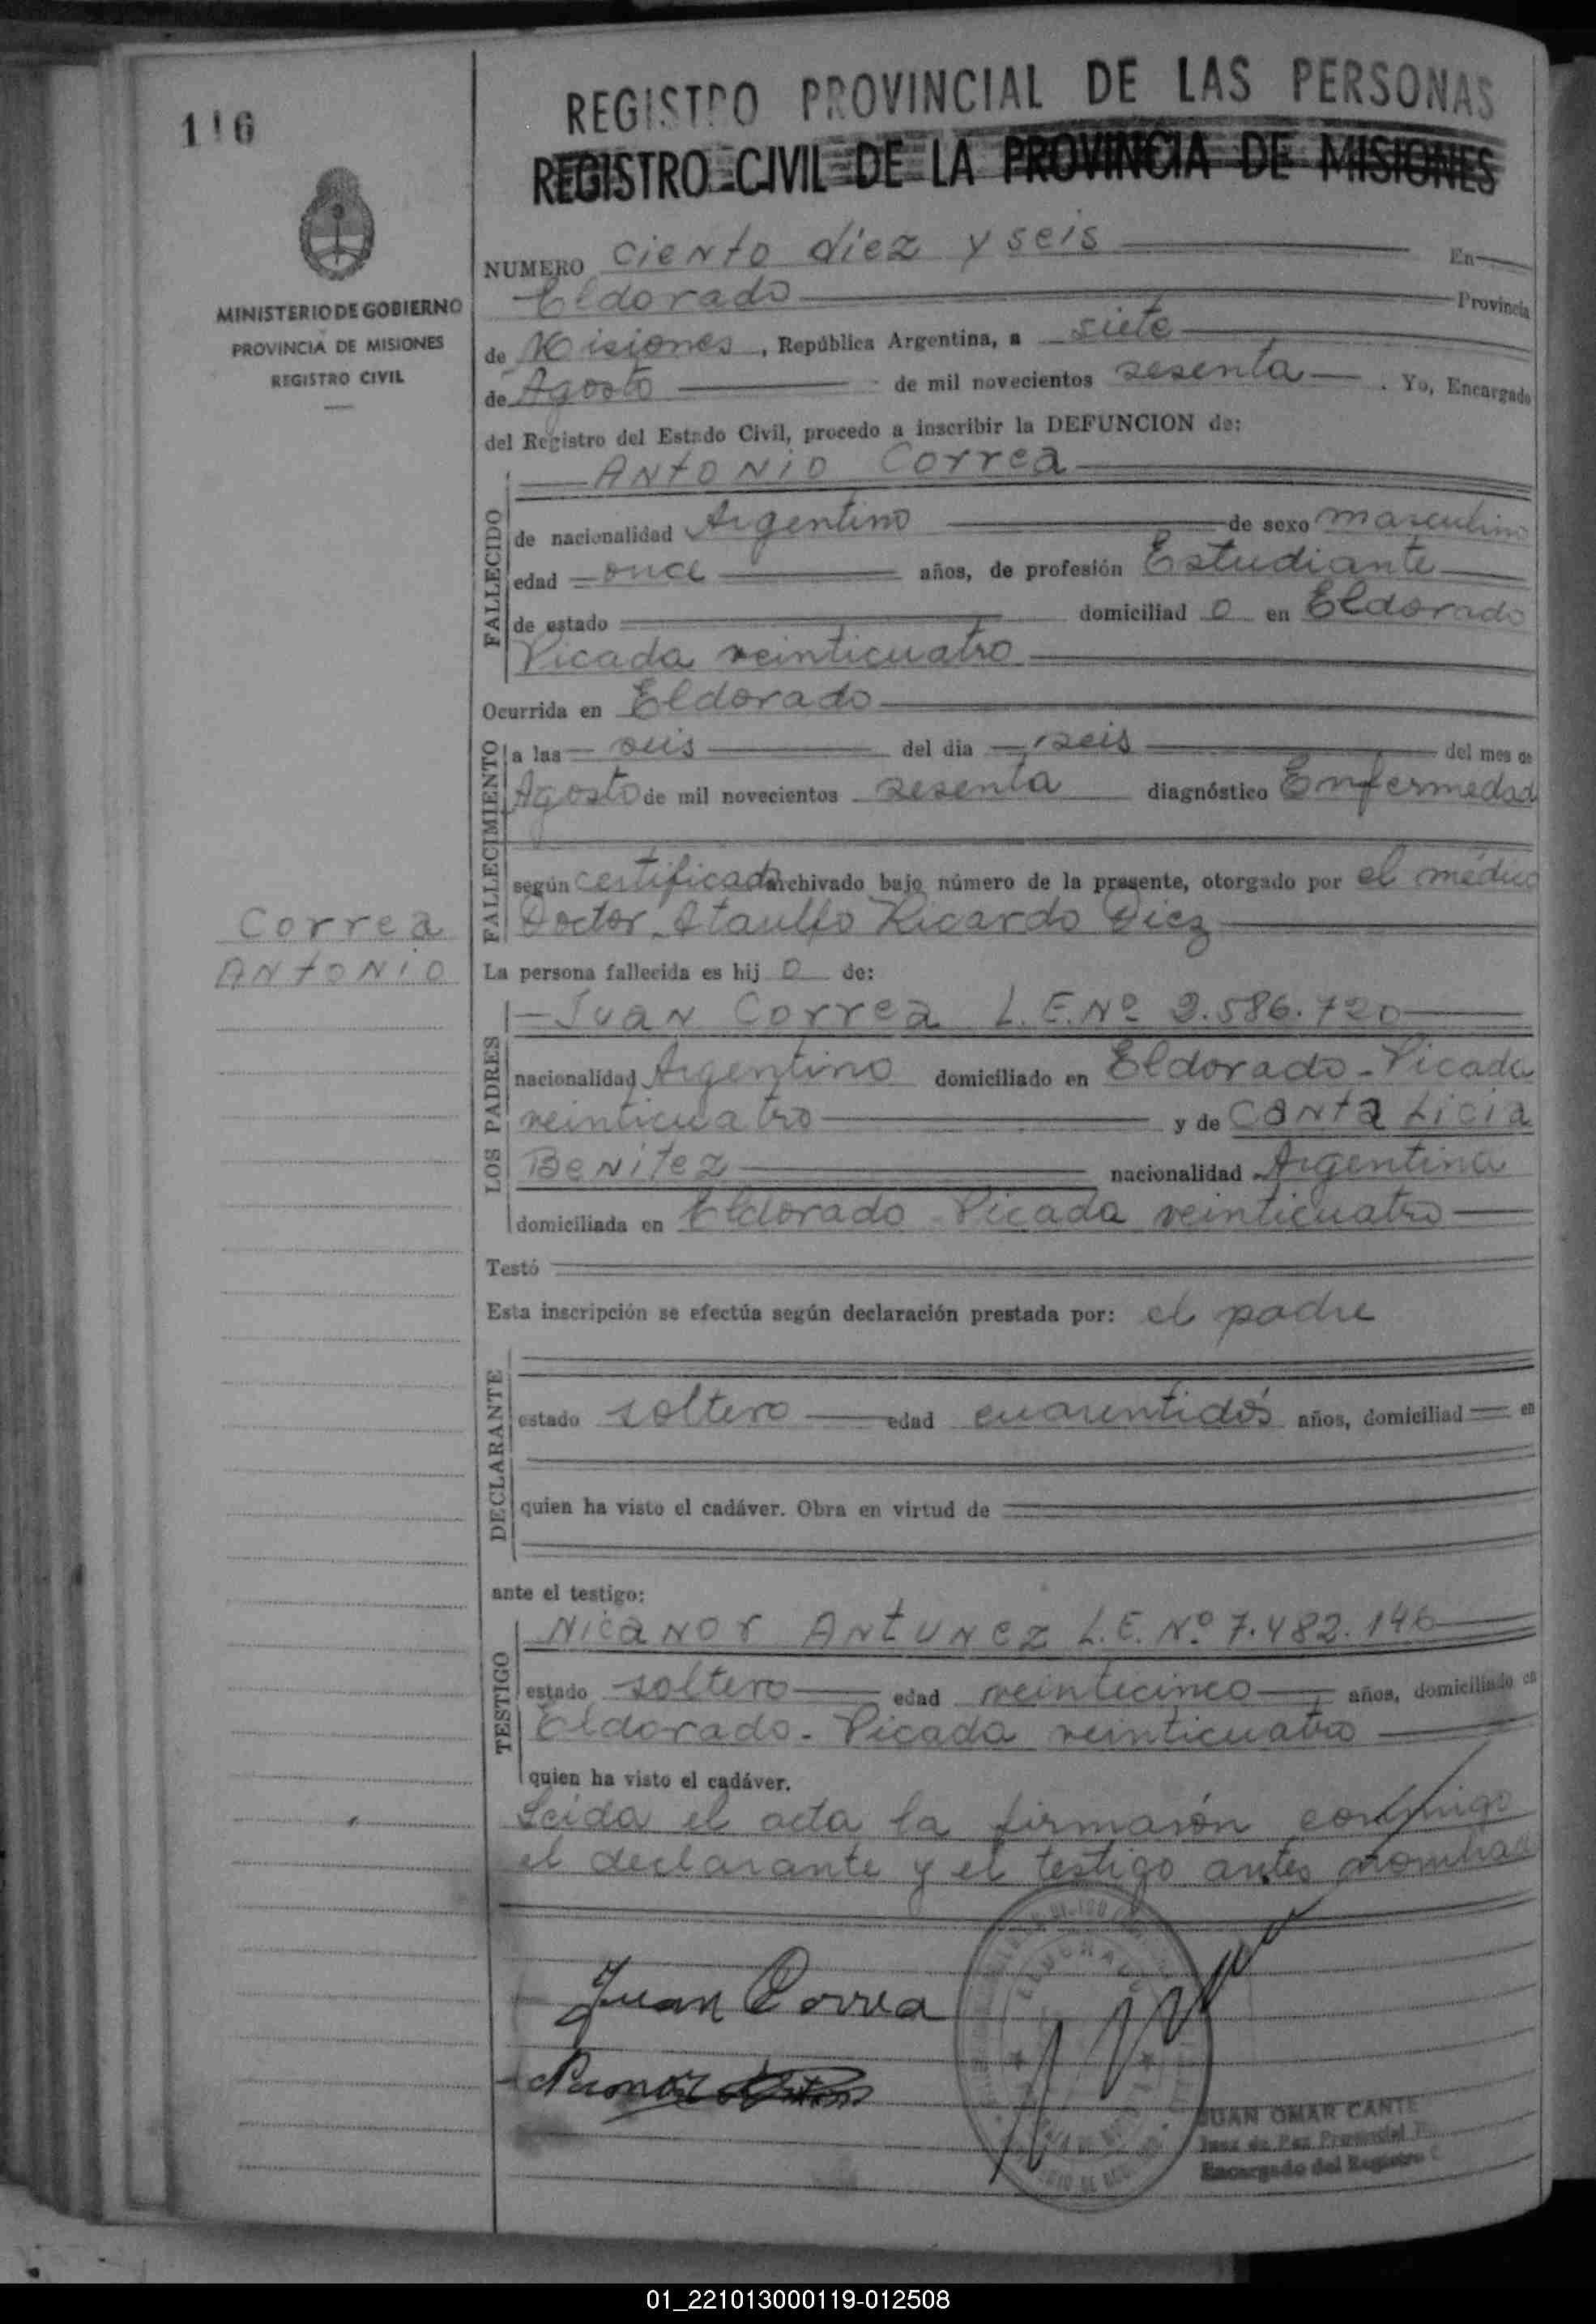 116
REGISTRO PROVINCIAL DE LAS PERSONAS
REGISTRO CIVIL DE LA PROVINCIA DE MISIONES
MINISTERIO DE GOBIERNO
PROVINCIA DE MISIONES
REGISTRO CIVIL
NUMERO ciento diez y seis En
Eldorado Provincia
de Misiones, República Argentina, a siete
de Agosto de mil novecientos sesenta. Yo, Encargado
del Registro del Estado Civil, procedo a inscribir la DEFUNCION de:
FALLECIDO
ANTONIO Correa
de nacionalidad Argentino de sexo masculino
edad once años, de profesión Estudiante
de estado domiciliad o en Eldorado
Picada veinticuatro
Ocurrida en Eldorado
FALLECIMIENTO
a las seis del dia seis del mes de
Agosto de mil novecientos sesenta diagnóstico Enfermedad
según certificado archivado bajo número de la presente, otorgado por el médico
Doctor Ataulfo Ricardo Diez
Correa
ANTONIO
La persona fallecida es hij o de:
LOS PADRES
Juan Correa L.E.Nº 2.586.720
nacionalidad Argentino domiciliado en Eldorado - Picada
veinticuatro y de Canta Licia
Benitez nacionalidad Argentina
domiciliada en Eldorado Picada veinticuatro
Testó
Esta inscripción se efectúa según declaración prestada por: el padre
DECLARANTE
estado soltero edad cuarentidós años, domiciliad en
quien ha visto el cadáver. Obra en virtud de
ante el testigo:
TESTIGO
Nicanor Antunez L.E. Nº 7.482.146
estado soltero edad veinticinco años, domiciliado en
Eldorado - Picada veinticuatro
quien ha visto el cadáver.
Leida el acta la firmarón conmigo
el declarante y el testigo antes nombrado
Juan Correa
JUAN OMAR CANTE
Juez de Paz Provincial
Encargado del Registro
01_221013000119-012508